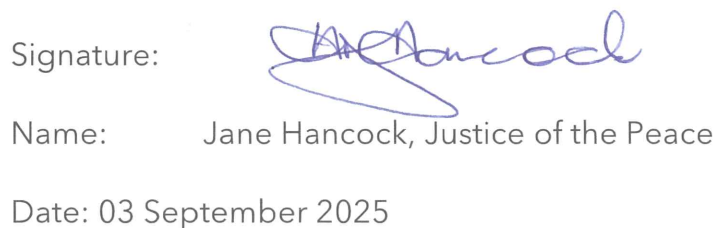 Signature: Hancock
Name: Jane Hancock, Justice of the Peace
Date: 03 September 2025